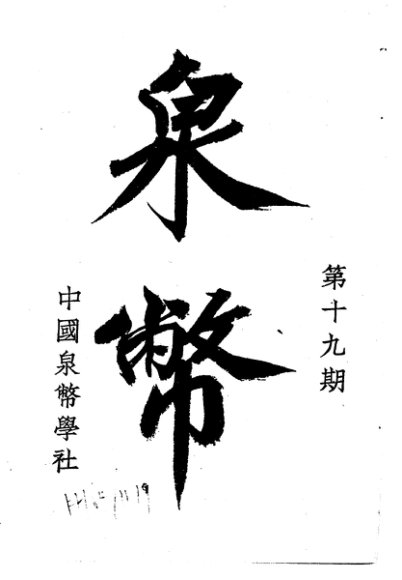 第十九期
泉幣
中國泉幣學社